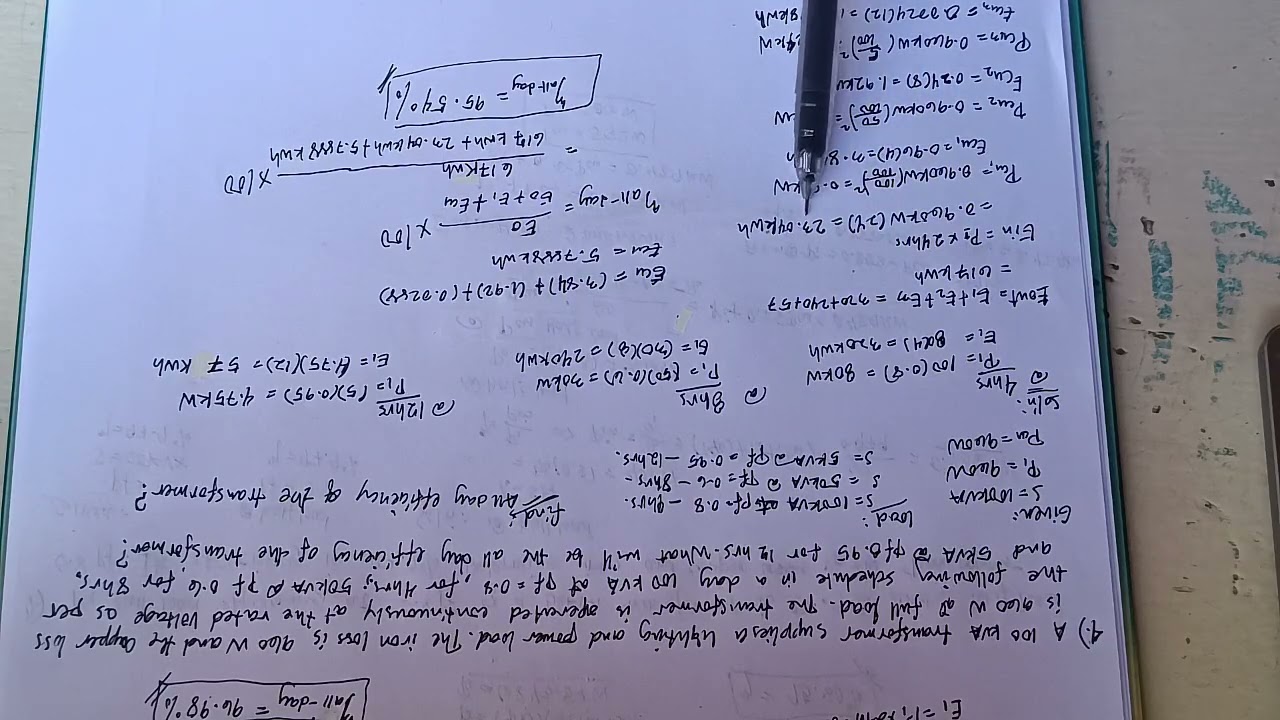 E₁ = P₁
η all-day = 96.98%
4.) A 100 kVA transformer supplies a lighting and power load. The iron loss is 960 W and the copper loss
is 960 W at full load. The transformer is operated continuously at the rated voltage as per
the following schedule in a day 100 kVA at pf = 0.8, for 4hrs; 50kVA @ pf 0.6 for 8hrs,
and 5kVA @ pf 0.95 for 12 hrs. What will be the all day efficiency of the transformer?
Given:
S = 100kVA
P₁ = 960W
Pcu = 960W
load:
S = 100kVA at pf = 0.8 -
S = 50kVA @ pf = 0.6 - 8hrs.
S = 5kVA @ pf = 0.95 - 12hrs.
Find: All day efficiency of the transformer?
Sol'n:
@ 4hrs
P₁ = 100(0.8) = 80kW
E₁ = 80(4) = 320kWh
@ 8hrs
P₁ = (50)(0.6) = 30kW
E₁ = (30)(8) = 240kWh
@ 12hrs
P₁ = (5)(0.95) = 4.75kW
E₁ = (4.75)(12) = 57 kWh
Eout = E₁ + E₂ + E₃ = 320+240+57
= 617 kWh
Ein = P₁ x 24hrs
= 0.960 kW (24) = 23.04kWh
Pcu₁ = 0.960kW (100/100)² = 0.
Ecu₁ = 0.96(4) = 3.8
Pcu₂ = 0.960kW (50/100)² =
Ecu₂ = 0.24(8) = 1.92kW
Pcu₃ = 0.960kW (5/100)²
Ecu₃ = 0.0024(12) =
Ecu = (3.84) + (1.92) + (0.0288)
Ecu = 5.7888 kWh
η all-day = Eo / Eo + E₁ + Ecu x100
= 617kWh / 617 kWh + 23.04 kWh + 5.7888 kWh x100
η all-day = 95.54%